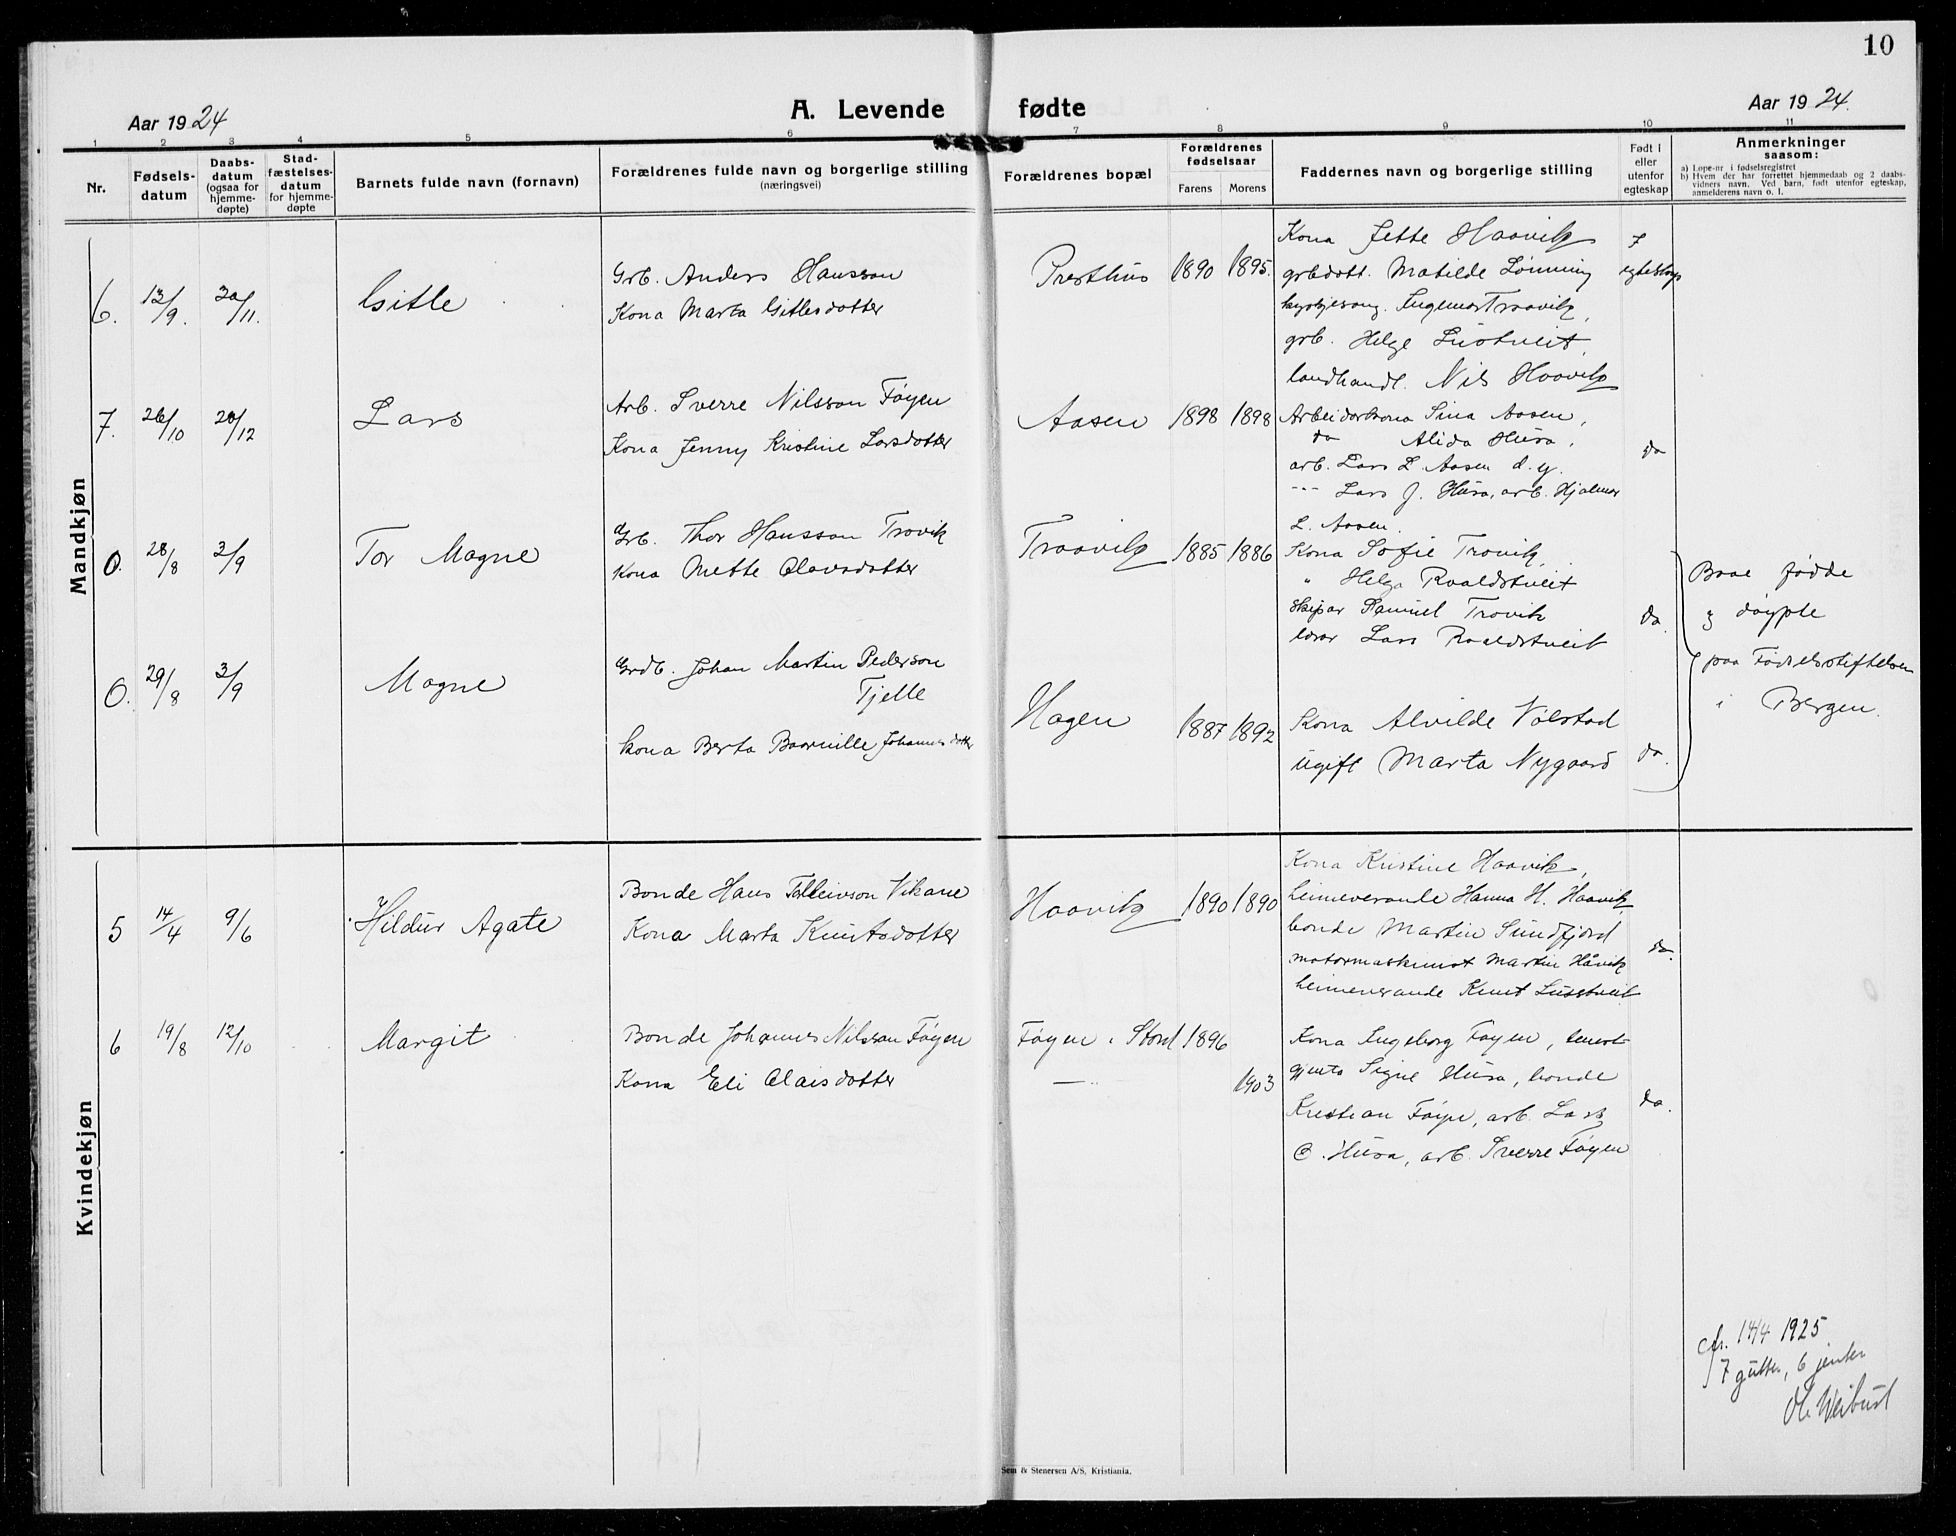 10
Aar 1924
A. Levende fødte
Aar 1924.
1 2 3 4 5 6 7 8 9 10 11
Nr.
Fødsels-
datum
Daabs-
datum
(ogsaa for
hjemme-
døpte)
Stad-
fæstelses-
datum
for hjemme-
døpte
Barnets fulde navn (fornavn)
Forældrenes fulde navn og borgerlige stilling
(næringsvei)
Forældrenes bopæl
Forældrenes
fødselsaar
Farens Morens
Faddernes navn og borgerlige stilling
Født i
eller
utenfor
egteskap
Anmerkninger
saasom:
a) Løpe-nr i fødselsregistret
b) Hvem der har forrettet hjemmedaab og 2 daabs-
vidners navn. Ved barn, født utenfor egteskap,
anmelderens navn o. l.
Mandkjøn
6. 13/9. 30/11. Gitle
Grb. Anders Hansson
Kona Marta Gitlesdotter
Presthus 1890 1895.
Kona Jette Haavik
grbdott. Matilde Lønning
kyrkjesong. Ingemar Traavik,
grb. Helge Lustveit,
landhandl. Nils Haavik
i
egteskap
7. 26/10 28/12 Lars
Arb. Sverre Nilsson Føyen
Kona Jenny Kristine Larsdotter
Aasen 1898 1898
Arbeidarkona Sina Aasen,
do Alida Husa,
arb. Lars L. Aasen d. y.
--- Lars J. Husa, arb. Hjalmar
L. Aasen.
do
0. 28/8 3/9 Tor Magne
Grb. Thor Hansson Trovik
Kona Mette Olavsdotter
Traavik 1885 1886
Kona Sofie Trovik,
" Helga Roaldstveit
skipar Samuel Trovik
lærar Lars Roaldstveit
do.
0. 29/8 3/9 Magne
Grdb. Johan Martin Pederson
Tjelle
kona Berta Baarnille Johannesdotter
Hagen 1887 1892
Kona Alvilde Valstad
ugift Marta Nygaard
do.
Baae fødde
og døypte
paa Fødselsstiftelsen
i Bergen.
Kvindekjøn
5 14/4 9/6 Hildur Agate
Bonde Hans Tolleivson Vikane
Kona Marta Knutsdotter
Haavik 1890 1890
Kona Kristine Haavik,
heimeverande Hanna H. Haavik,
bonde Martin Sundfjord
motormaskinist Martin Håvik
heimeverande Knut Lusstveit
do.
6 19/8 12/10 Margit
Bonde Johannes Nilsson Føyen
Kona Eli Olaisdotter
Føyen i Stord 1896
— 1903
Kona Ingeborg Føyen, tenest-
gjenta Signe Husa, bonde
Kristian Føyen, arb. Lars
O. Husa, arb. Sverre Føyen
do.
cfr. 14/4 1925
7 gutter, 6 jenter
Ole Weibust
Sem & Stenersen A/S, Kristiania.